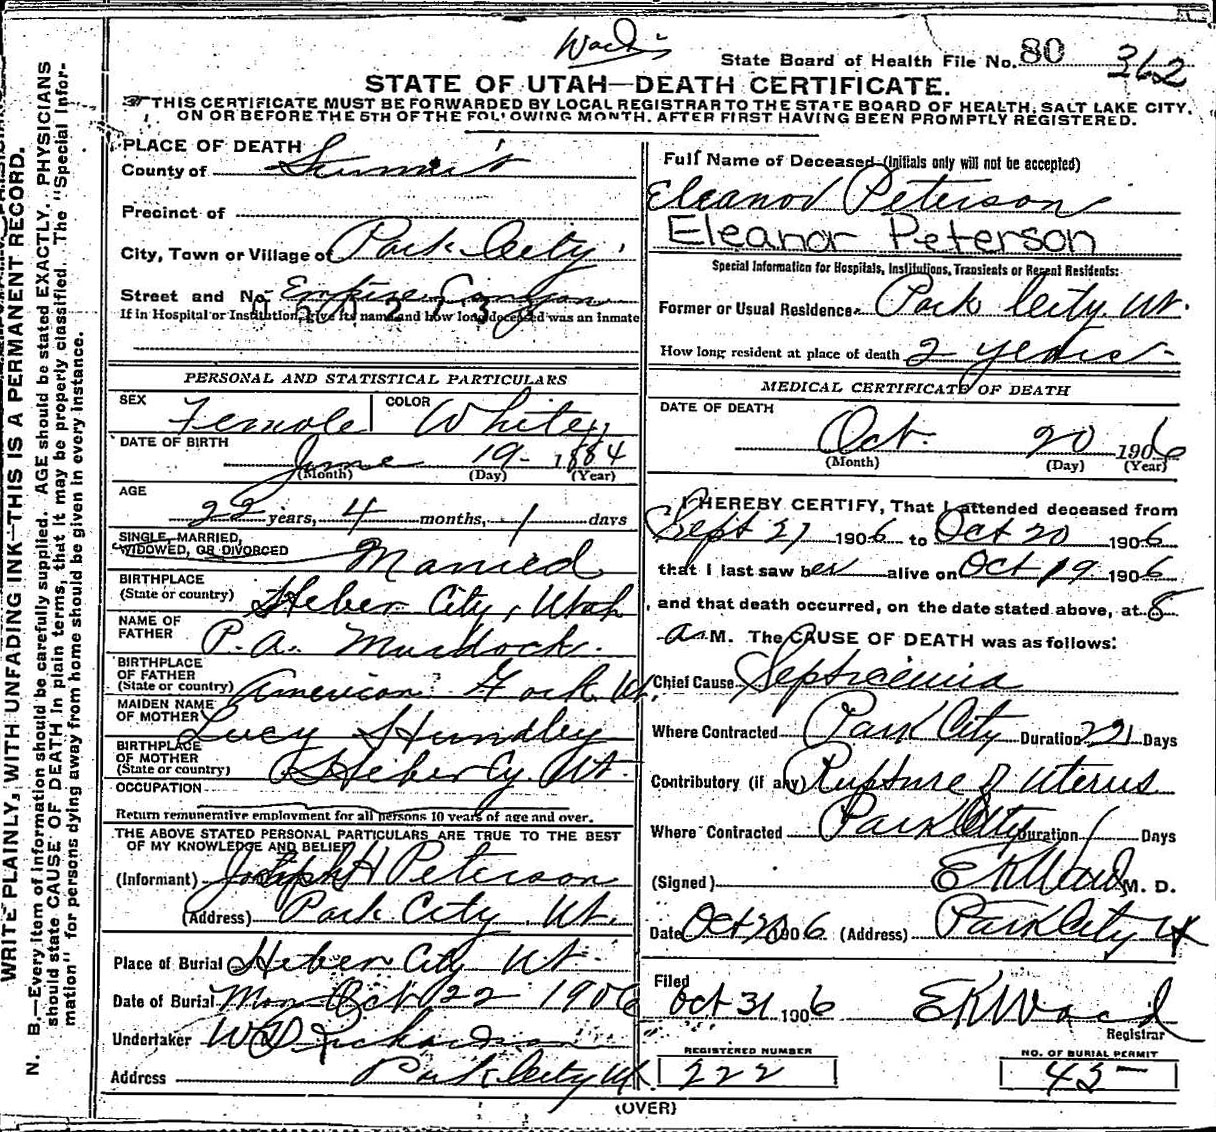 Wach's
State Board of Health File No. 80 362
STATE OF UTAH—DEATH CERTIFICATE.
THIS CERTIFICATE MUST BE FORWARDED BY LOCAL REGISTRAR TO THE STATE BOARD OF HEALTH, SALT LAKE CITY,
ON OR BEFORE THE 5TH OF THE FOLLOWING MONTH, AFTER FIRST HAVING BEEN PROMPTLY REGISTERED.
WRITE PLAINLY, WITH UNFADING INK—THIS IS A PERMANENT RECORD.
N. B.—Every item of information should be carefully supplied. AGE should be stated EXACTLY. PHYSICIANS
should state CAUSE OF DEATH in plain terms, that it may be properly classified. The "Special Infor-
mation" for persons dying away from home should be given in every instance.
PLACE OF DEATH
County of Summit
Precinct of
City, Town or Village of Park City
Street and No. Empire Canyon
If in Hospital or Institution, give its name and how long deceased was an inmate
PERSONAL AND STATISTICAL PARTICULARS
SEX Female COLOR White
DATE OF BIRTH
June 19 - 1884
(Month) (Day) (Year)
AGE
22 years, 4 months, 1 days
SINGLE, MARRIED,
WIDOWED, OR DIVORCED Married
BIRTHPLACE
(State or country) Heber City, Utah
NAME OF
FATHER P. A. Murdock
BIRTHPLACE
OF FATHER
(State or country) American Fork Ut.
MAIDEN NAME
OF MOTHER Lucy Hundley
BIRTHPLACE
OF MOTHER
(State or country) Heber Cy. Ut.
OCCUPATION
Return remunerative employment for all persons 10 years of age and over.
THE ABOVE STATED PERSONAL PARTICULARS ARE TRUE TO THE BEST
OF MY KNOWLEDGE AND BELIEF
(Informant) Joseph H Peterson
(Address) Park City Ut.
Place of Burial Heber City Ut.
Date of Burial Mon Oct 22 1906
Undertaker W D Richardson
Address Park City Ut
Full Name of Deceased (Initials only will not be accepted)
Eleanor Peterson
Eleanor Peterson
Special Information for Hospitals, Institutions, Transients or Recent Residents:
Former or Usual Residence Park City Ut.
How long resident at place of death 2 years
MEDICAL CERTIFICATE OF DEATH
DATE OF DEATH
Oct. 20 1906
(Month) (Day) (Year)
I HEREBY CERTIFY, That I attended deceased from
Sept 27 1906 to Oct 20 1906
that I last saw her alive on Oct 19 1906
, and that death occurred, on the date stated above, at 8
a. M. The CAUSE OF DEATH was as follows:
Chief Cause Septicaemia
Where Contracted Park City Duration 22 Days
Contributory (if any) Rupture of uterus
Where Contracted Park City Duration 1 Days
(Signed) E K Ward M. D.
Date Oct 20 1906 (Address) Park City Ut
Filed
Oct 31 1906 E K Ward
Registrar
REGISTERED NUMBER
222
NO. OF BURIAL PERMIT
45
(OVER)